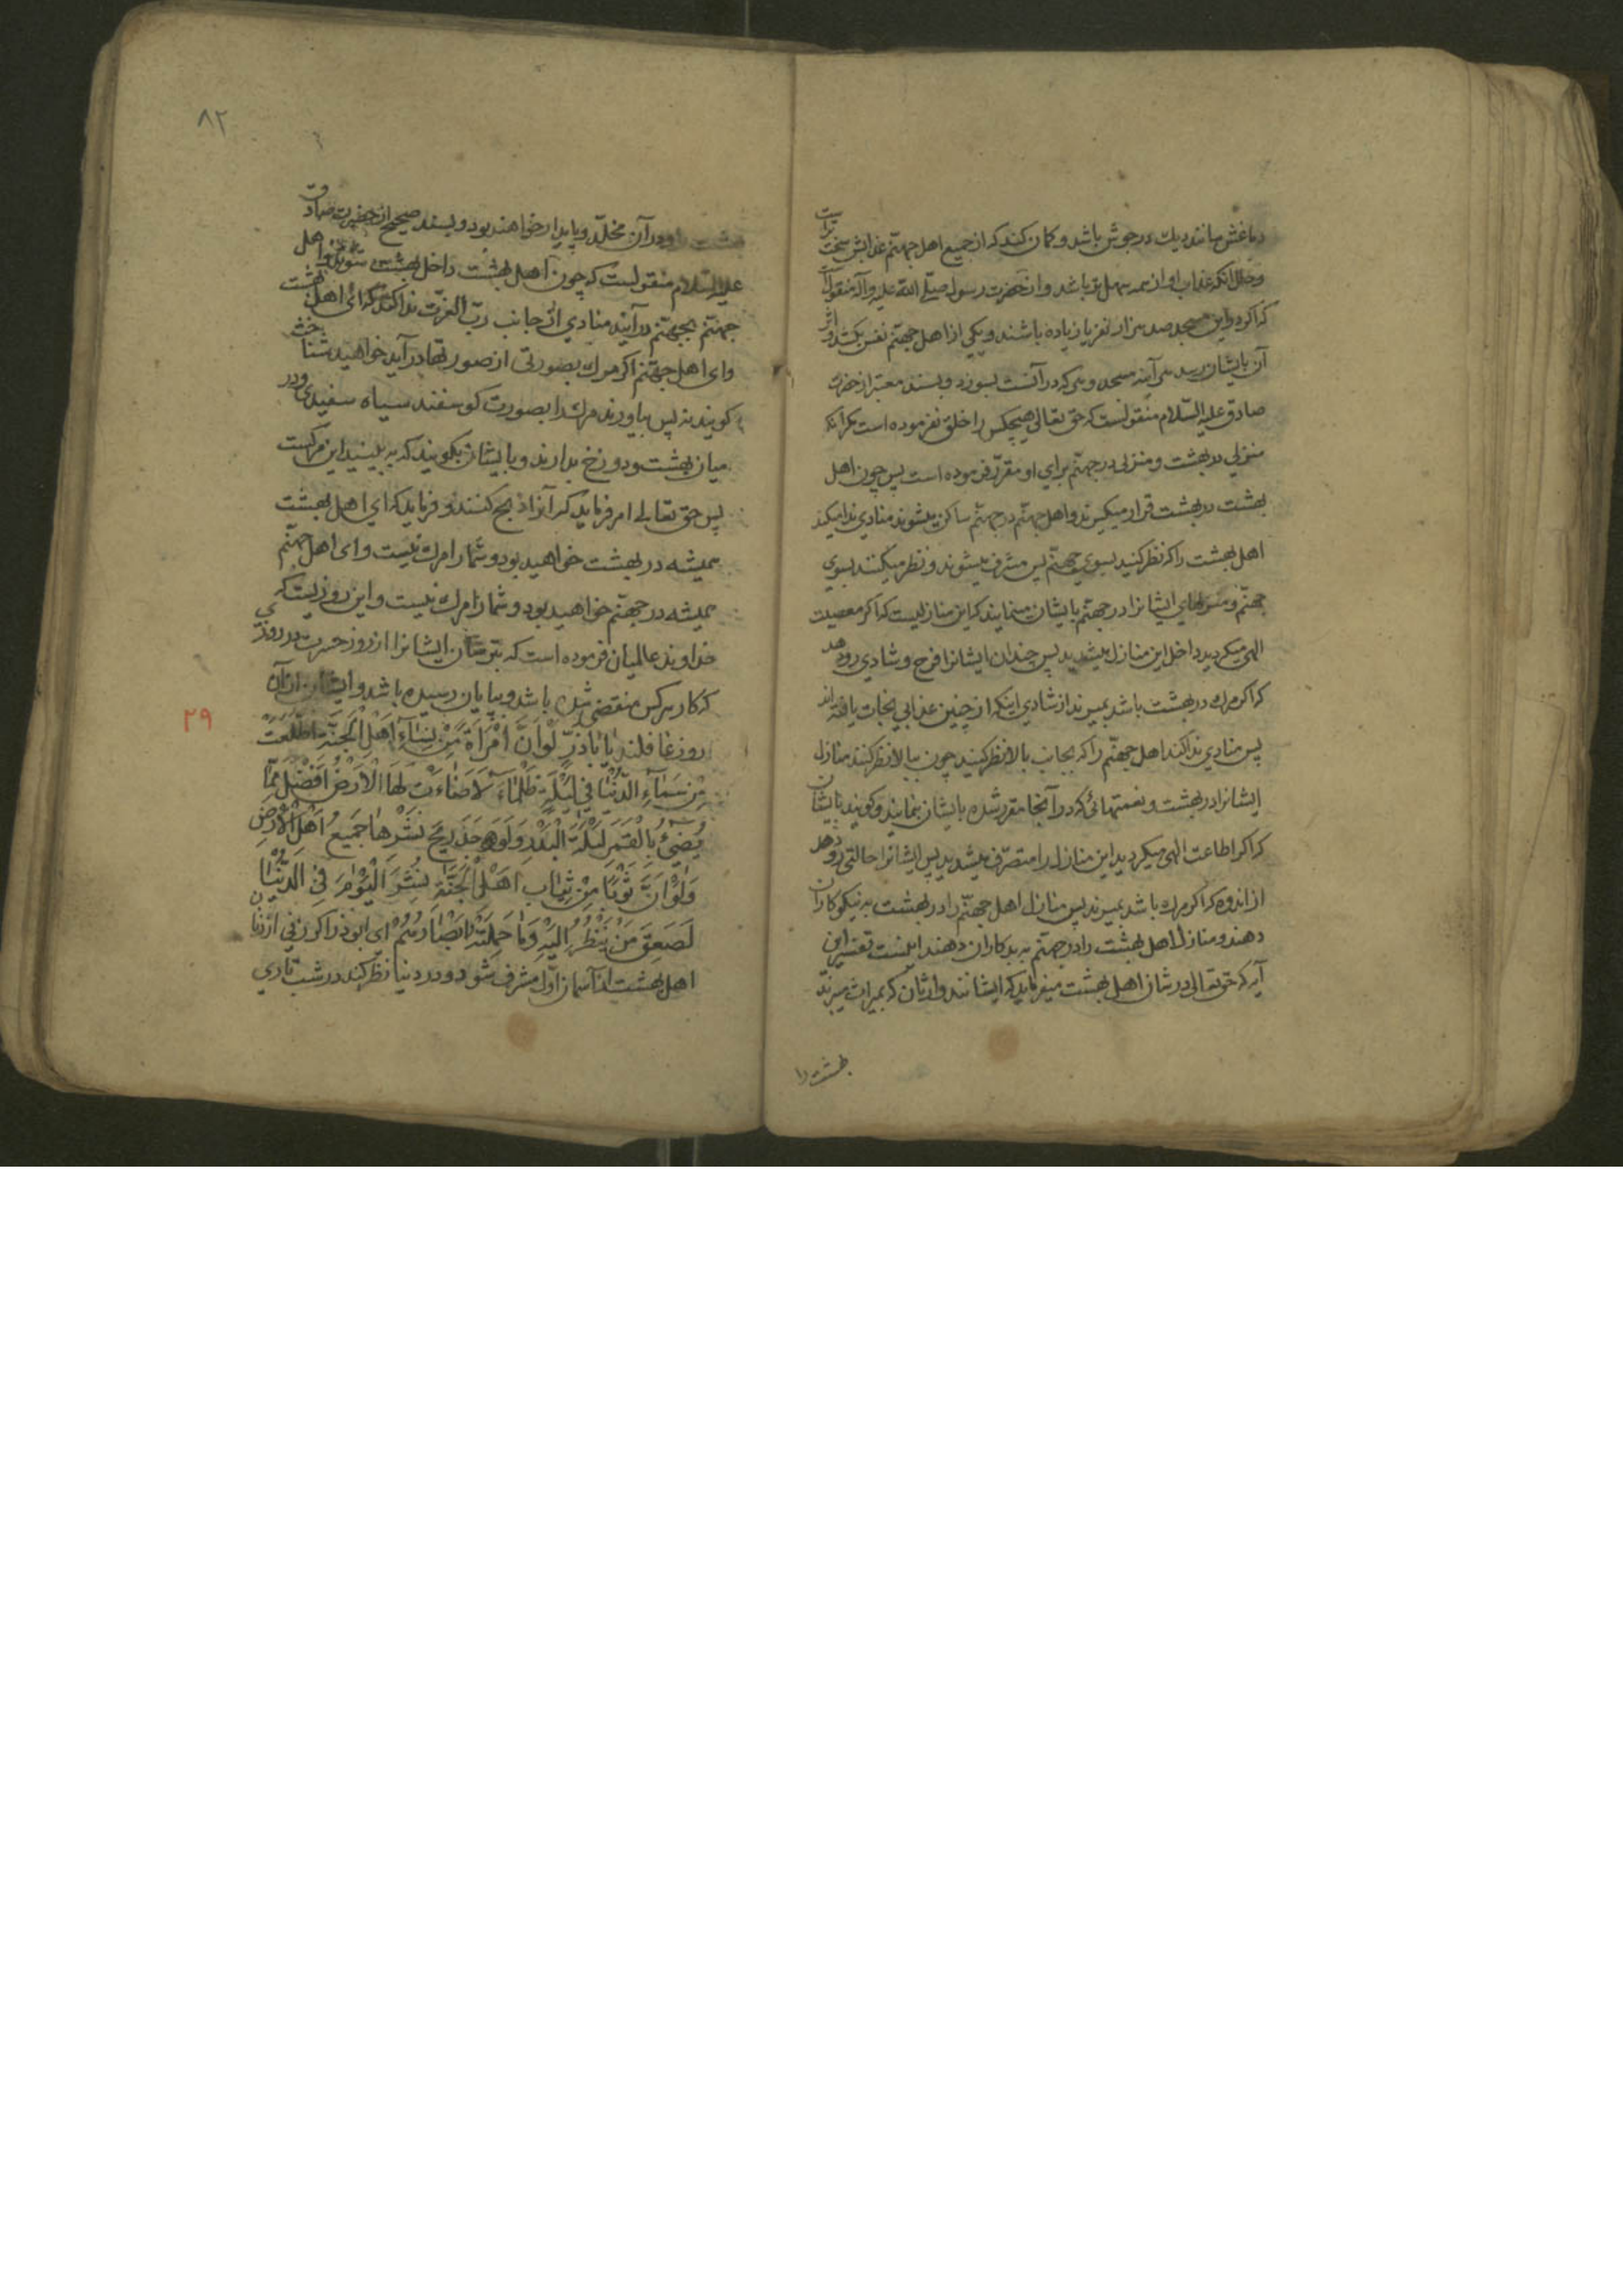 دماغش مانند دیك در جوش باشد و کمان کند که از جمیع اهل جهنّم عذابش سخت تراست
وحال انکه عذاب او از همه سهل تر باشد و از حضرت رسول صلّی الله علیه وآله منقولست
که اکر در این مسجد صد هزار نفر یا زیاده باشند و یکی از اهل جهنّم نفس بکشد و اثر
آن بایشان رسد هر آینه مسجد و هر که در آنست بسوزد و بسند معتبر از حضرت
صادق علیه السّلام منقولست که حق تعالی هیچکس را خلق نفرموده است مکر آنکه
منزلی در بهشت و منزلی در جهنّم برای او مقرّر فرموده است پس چون اهل
بهشت در بهشت قرار میکیرند و اهل جهنّم در جهنّم ساکن میشوند منادی ندا میکند
اهل بهشت را که نظر کنید بسوی جهنّم پس مشرف میشوند و نظر میکنند بسوی
جهنّم و منزلهای ایشانرا در جهنّم بایشان مینمایند که این منازلیست که اکر معصیت
الهی میکردید داخل این منازل میشدید پس چندان ایشانرا فرح و شادی رودهد
که اکر مرك در بهشت باشد بمیرند از شادی اینکه از چنین عذابی نجات یافته اند
پس منادی ندا کند اهل جهنّم را که بجانب بالا نظر کنید چون ببالا نظر کنند منازل
ایشانرا در بهشت و نعمتهائی که در آنجا مقرر شده بایشان بنمایند و کویند بایشان
که اکر اطاعت الهی میکردید این منازل را متصرّف میشدید پس ایشانرا حالتی رو دهد
از اندوه که اکر مرك باشد بمیرند پس منازل اهل جهنّم را در بهشت به نیکوکاران
دهند و منازل اهل بهشت را در جهنّم به بدکاران دهند اینست تفسیر این
آیه که حق تعالی در شان اهل بهشت میفرماید که ایشانند وارثان که بمیراث میبرند
بهشت را
٨٢
بهشت را و در آن مخلّد و پایدار خواهند بود و بسند صحیح از حضرت صادق
علیه السّلام منقولست که چون اهل بهشت داخل بهشت شوند و اهل
جهنّم بجهنّم درآیند منادی از جانب ربّ العزّت ندا کند که ای اهل بهشت
وای اهل جهنّم اکر مرك بصورتی از صورتها درآید خواهید شناخت
کویند نه پس بیاورند مرك را بصورت کوسفند سیاه سفیدی و در
میان بهشت و دوزخ بدارند و بایشان بکویند که به بینید این مرکست
پس حق تعالی امر فرماید که آنرا ذبح کنند و فرماید که ای اهل بهشت
همیشه در بهشت خواهید بود و شما را مرك نیست و ای اهل جهنّم
همیشه در جهنّم خواهید بود و شما را مرك نیست و این روزیست که
خداوند عالمیان فرموده است که بترسان ایشانرا از روز حسرت در روزی
که کار هرکس منقضی شده باشد و بپایان رسیده باشد و ایشان از آن
روز غافلند یٰا بٰاذَرٍّ لَوْ اَنَّ اْمْرَاَةً مِنْ نِسٰاءِ اَهْلِ الْجَنَّةِ اطَّلَعَتْ
٢٩
مِنْ سَمٰاءِ الدُّنْیٰا فی لَیْلَةٍ ظَلْمٰاءَ لَاَضٰاءَتْ لَهَا الْاَرْضُ اَفْضَلَ مِمّٰا
یُضیُٔ بِالْقَمَرِ لَیْلَةَ الْبَدْرِ وَلَوَجَدَ ریحَ نَشْرِهٰا جَمیعُ اَهْلِ الْاَرْضِ
وَلَوْ اَنَّ ثَوْبًا مِنْ ثِیٰابِ اَهْلِ الْجَنَّةِ نُشِرَ الْیَوْمَ فِی الدُّنْیٰا
لَصَعِقَ مَنْ یَنْظُرُ اِلَیْهِ وَمٰا حَمِلَتْهُ اَبْصٰارُهُمْ ای ابوذر اکر زنی از زنان
اهل بهشت از آسمان اوّل مشرف شود و در دنیا نظر کند در شب تاری